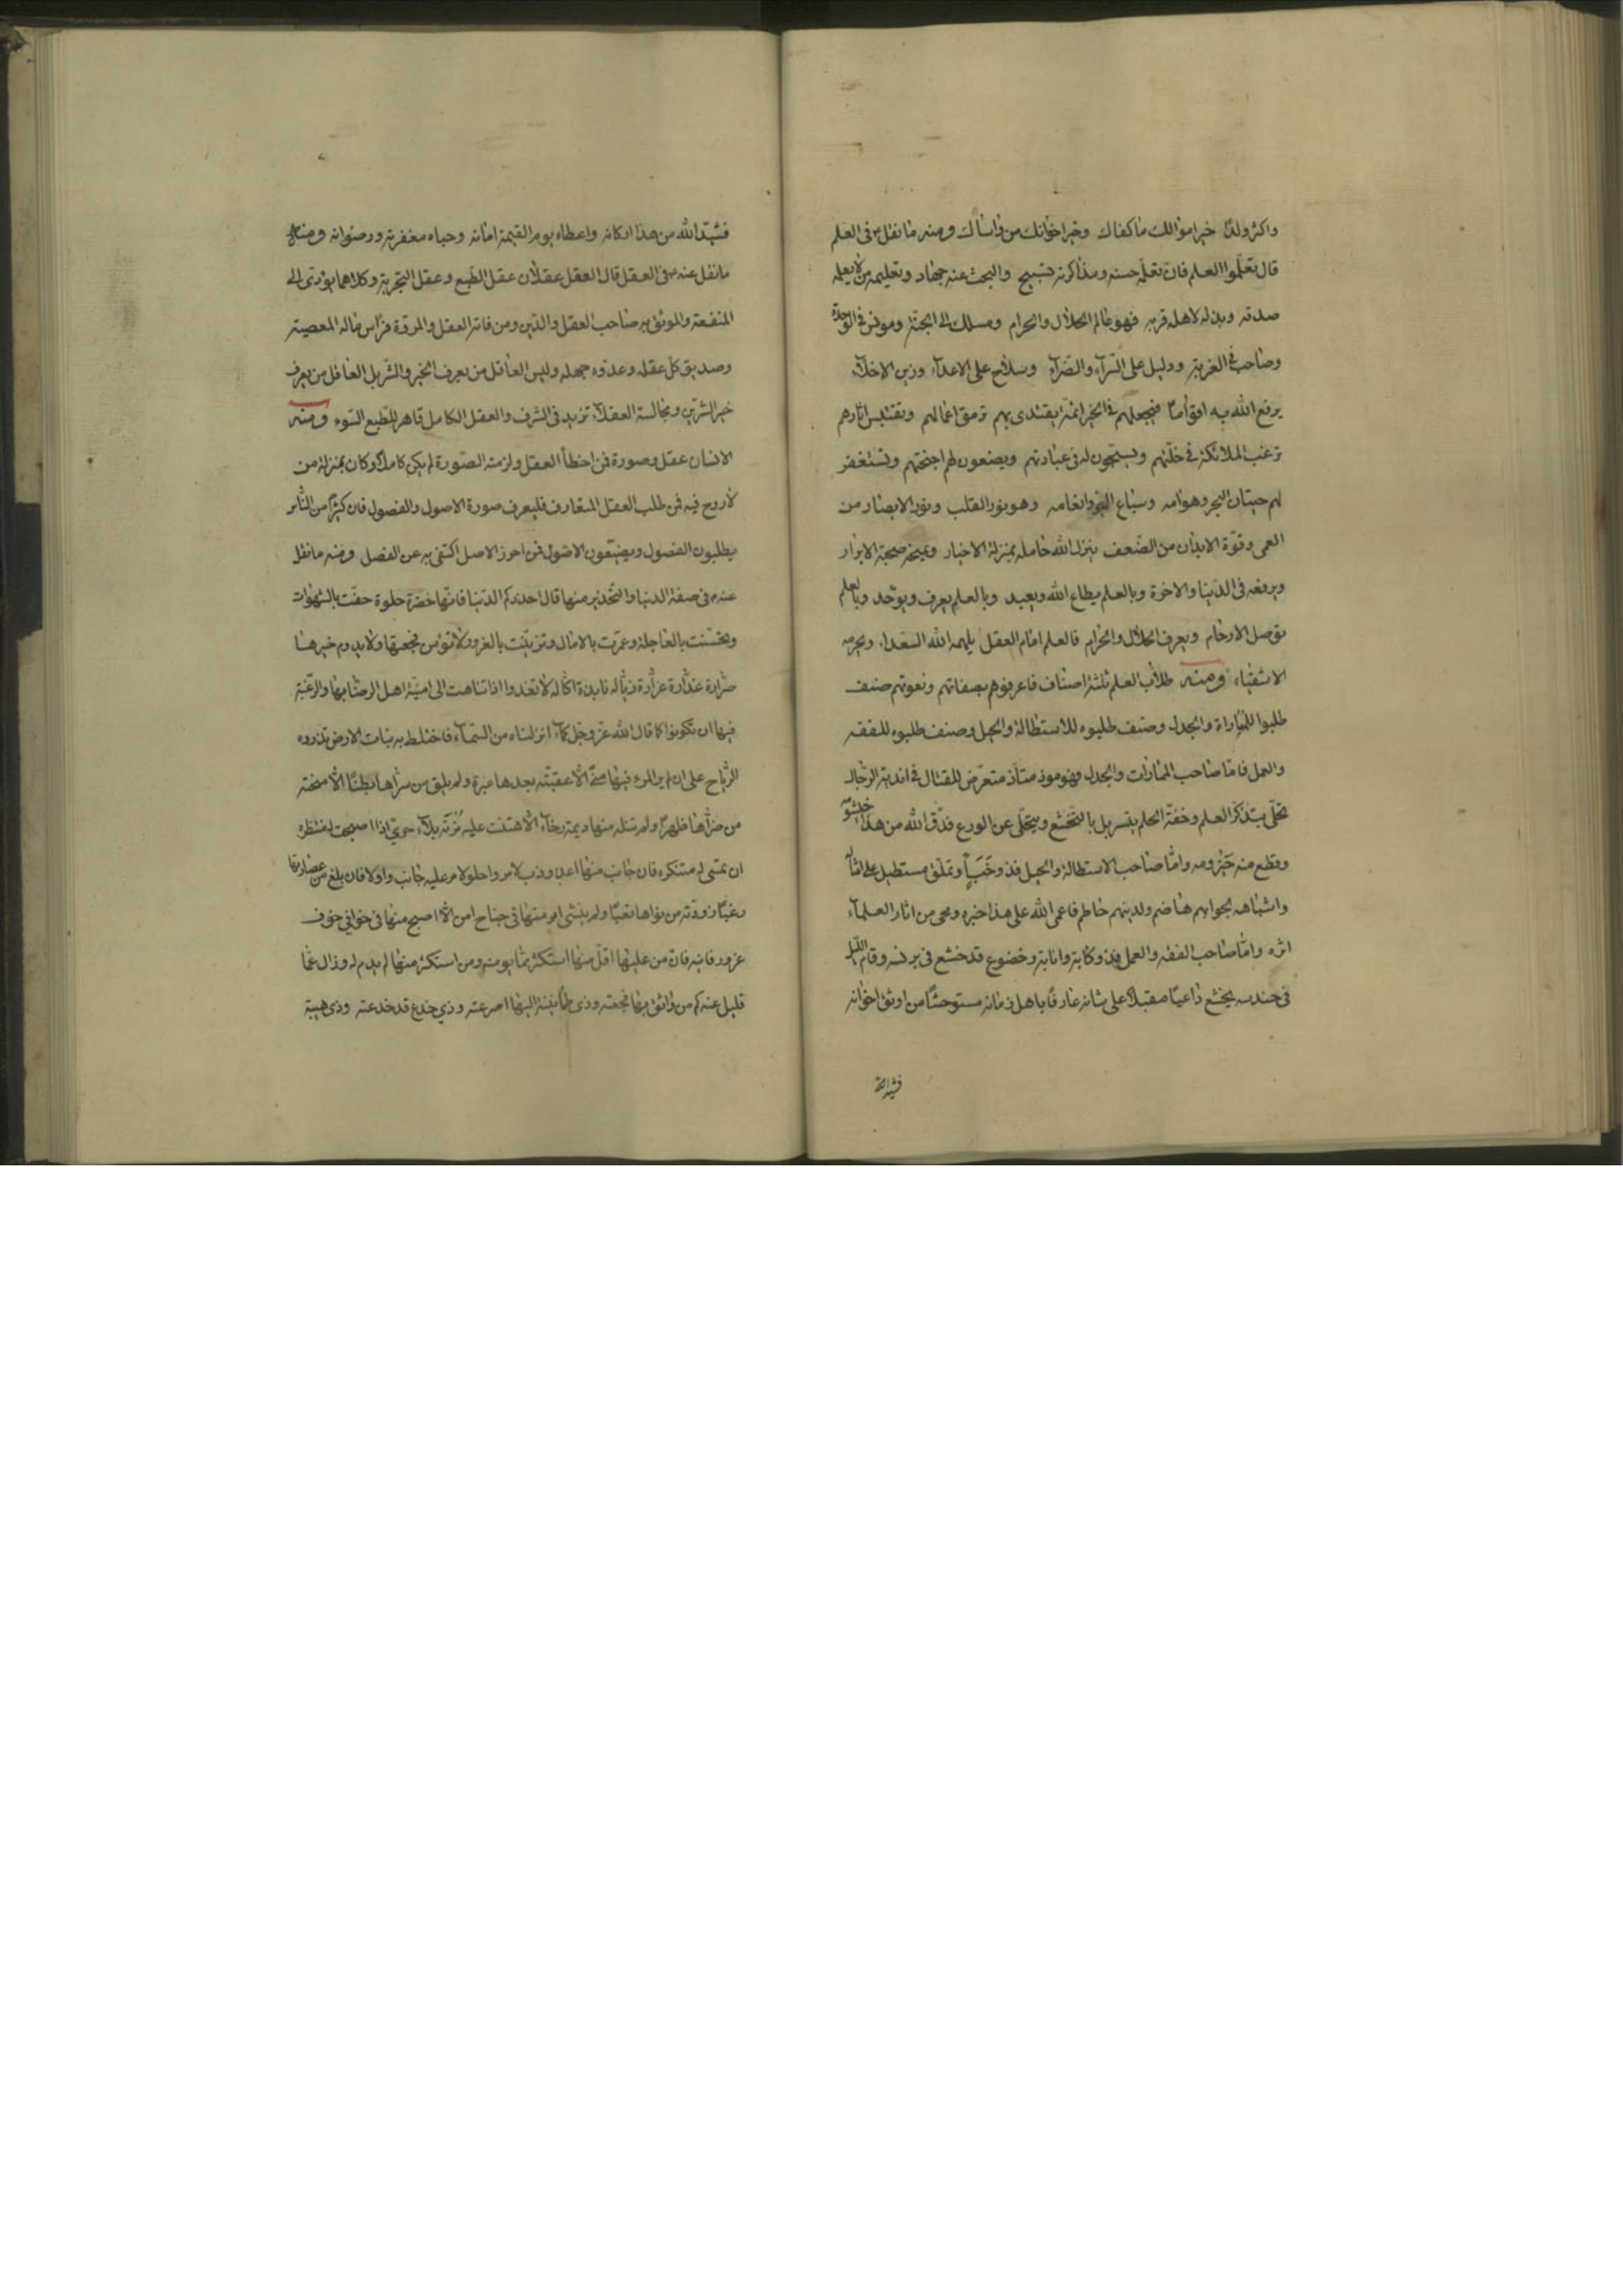 واكثر ولدًا خير اموالك ماكفاك وخير اخوانك من واساك ومنه ما نقل عنه في العلم
قال تعلّموا العلم فان تعلّمه حسنه ومذاكرته تسبيح والبحث عنه جهاد وتعليمه من لا يعلمه
صدقه وبذله لاهله قربه فهو معالم الحلال والحرام ومسلك الى الجنّة ومونس في الوحدة
وصاحب في الغربة ودليل على السّرآء والضّرآء وسلاح على الاعدآء وزين الاخلآء
يرفع الله به اقوامًا فيجعلهم في الخير ائمّة يقتدى بهم ترمق اعمالهم وتقتبس اثارهم
ترغب الملائكة في خلّتهم ويضعون لهم اجنحتهم وتستغفر
لهم حيتان البحر وهوامه وسباع البرّ وانعامه وهو نور القلب ونور الابصار من
العمى وقوّة الابدان من الضّعف ينزل الله حامله بمنزلة الاخيار ويمنحه صحبة الابرار
ويرفعه فى الدّنيا والاخرة وبالعلم يطاع الله ويعبد وبالعلم يعرف ويوحّد وبالعلم
توصل الارحام ويعرف الحلال والحرام فالعلم امام العقل يلهمه الله السعداء ويحرمه
الاشقياء ومنه طلاب العلم ثلثة اصناف فاعرفوهم بصفاتهم ونعوتهم صنف
طلبوا للمباراة والجدل وصنف طلبوه للاستطالة والحيل وصنف طلبوه للفقه
والعمل فامّا صاحب المماراة والجدل فهو موذ متعرّض للقتال في اندية الرّجال
تحلّى بتذكر العلم وخفّة الحلم يتسربل بالتخشع ويتخلّى عن الورع فدقّ الله من هذا خيشومه
وقطع منه حيزومه وامّا صاحب الاستطالة والحيل فذو خَبٍّ وتملّق مستطيل على امثاله
واشباهه لحوائهم هاضم ولدينهم حاطم فاعمى الله على هذا خبره ومحى من اثار العلمآء
اثره وامّا صاحب الفقه والعمل فذو كآبة وانابة وخضوع قد خشع في برنسه وقام اللّيل
فى حندسه يخشع داعيًا مقبلاً على شانه عارفًا باهل زمانه مستوحشًا من اوثق اخوانه
فشيد الله
فشيّد الله من هذا اركانه واعطاه يوم القيمة امانه وحباه مغفرته ورضوانه ومنه
ما نقل عنه في العقل قال العقل عقلان عقل الطّبع وعقل التجربة وكلاهما يؤدّى الى
المنفعة والموثق به صاحب العقل والدّين ومن فاته العقل والمروّة فرأس ماله المعصية
وصديق كل عقله وعدوّه جهله وليس العاقل من يعرف الخير والشّر بل العاقل من يعرف
خير الشّرّين ومجالسة العقلآء تزيد في الشرف والعقل الكامل قاهر للطّبع السّوء ومنه
الانسان عقل وصورة فمن اخطأ العقل ولزمته الصّورة لم يكن كاملاً وكان بمنزلة من
لا روح فيه فمن طلب العقل المتعارف فليعرف صورة الاصول والفصول فان كثيرًا من النّاس
يطلبون الفصول ويضيّعون الاصول فمن احرز الاصل اكتفى به عن الفصل ومنه ما نقل
عنه في صفة الدنيا والتّحذير منها قال احذركم الدّنيا فانّها خضرة حلوة حفّت بالشهوات
وتحسّنت بالعاجلة وعمّرت بالامال وتزيّنت بالغرور لا تؤمن فجعتها ولا يدوم خيرها
ضرّارة غدّارة غرّارة زائلة بائدة اكّالة لا تعدوا اذا تناهت الى امنيّة اهل الرضا بها والرّغبة
فيها ان تكونوا كما قال الله عز وجل كمآء انزلناه من السّمآء فاختلط به نبات الارض تذروه
الرّياح على ان المرء فيها الّا اعقبته بعدها عبرة ولم يلق من سرّاها بطنًا الّا منحته
من ضرّاها ظهرًا ولم تنله منها ديمة رخآء الّا هتنت عليه مُزنة بلآء حريّ اذا اصبحت له منتظرة
ان تمسى له متنكرة فان جانب منها اعذوذب لامرء واحلولا مر عليه جانب واوبا فان بلغ من غضارتها
رغبًا زوّدته من نوائبها تعبًا ولم يمسى امرء منها في جناح امن الّا اصبح منها في خوافي خوف
غرور فانية فان من عليها اقلّ منها استكثر ممّا يومنه ومن استكثر منها لم يدم له وزال عمّا
قليل عنه كم من واثق بها فجعته وذى طمأنينة اليها صرعته وذي خدع قد خدعته وذى هيبة